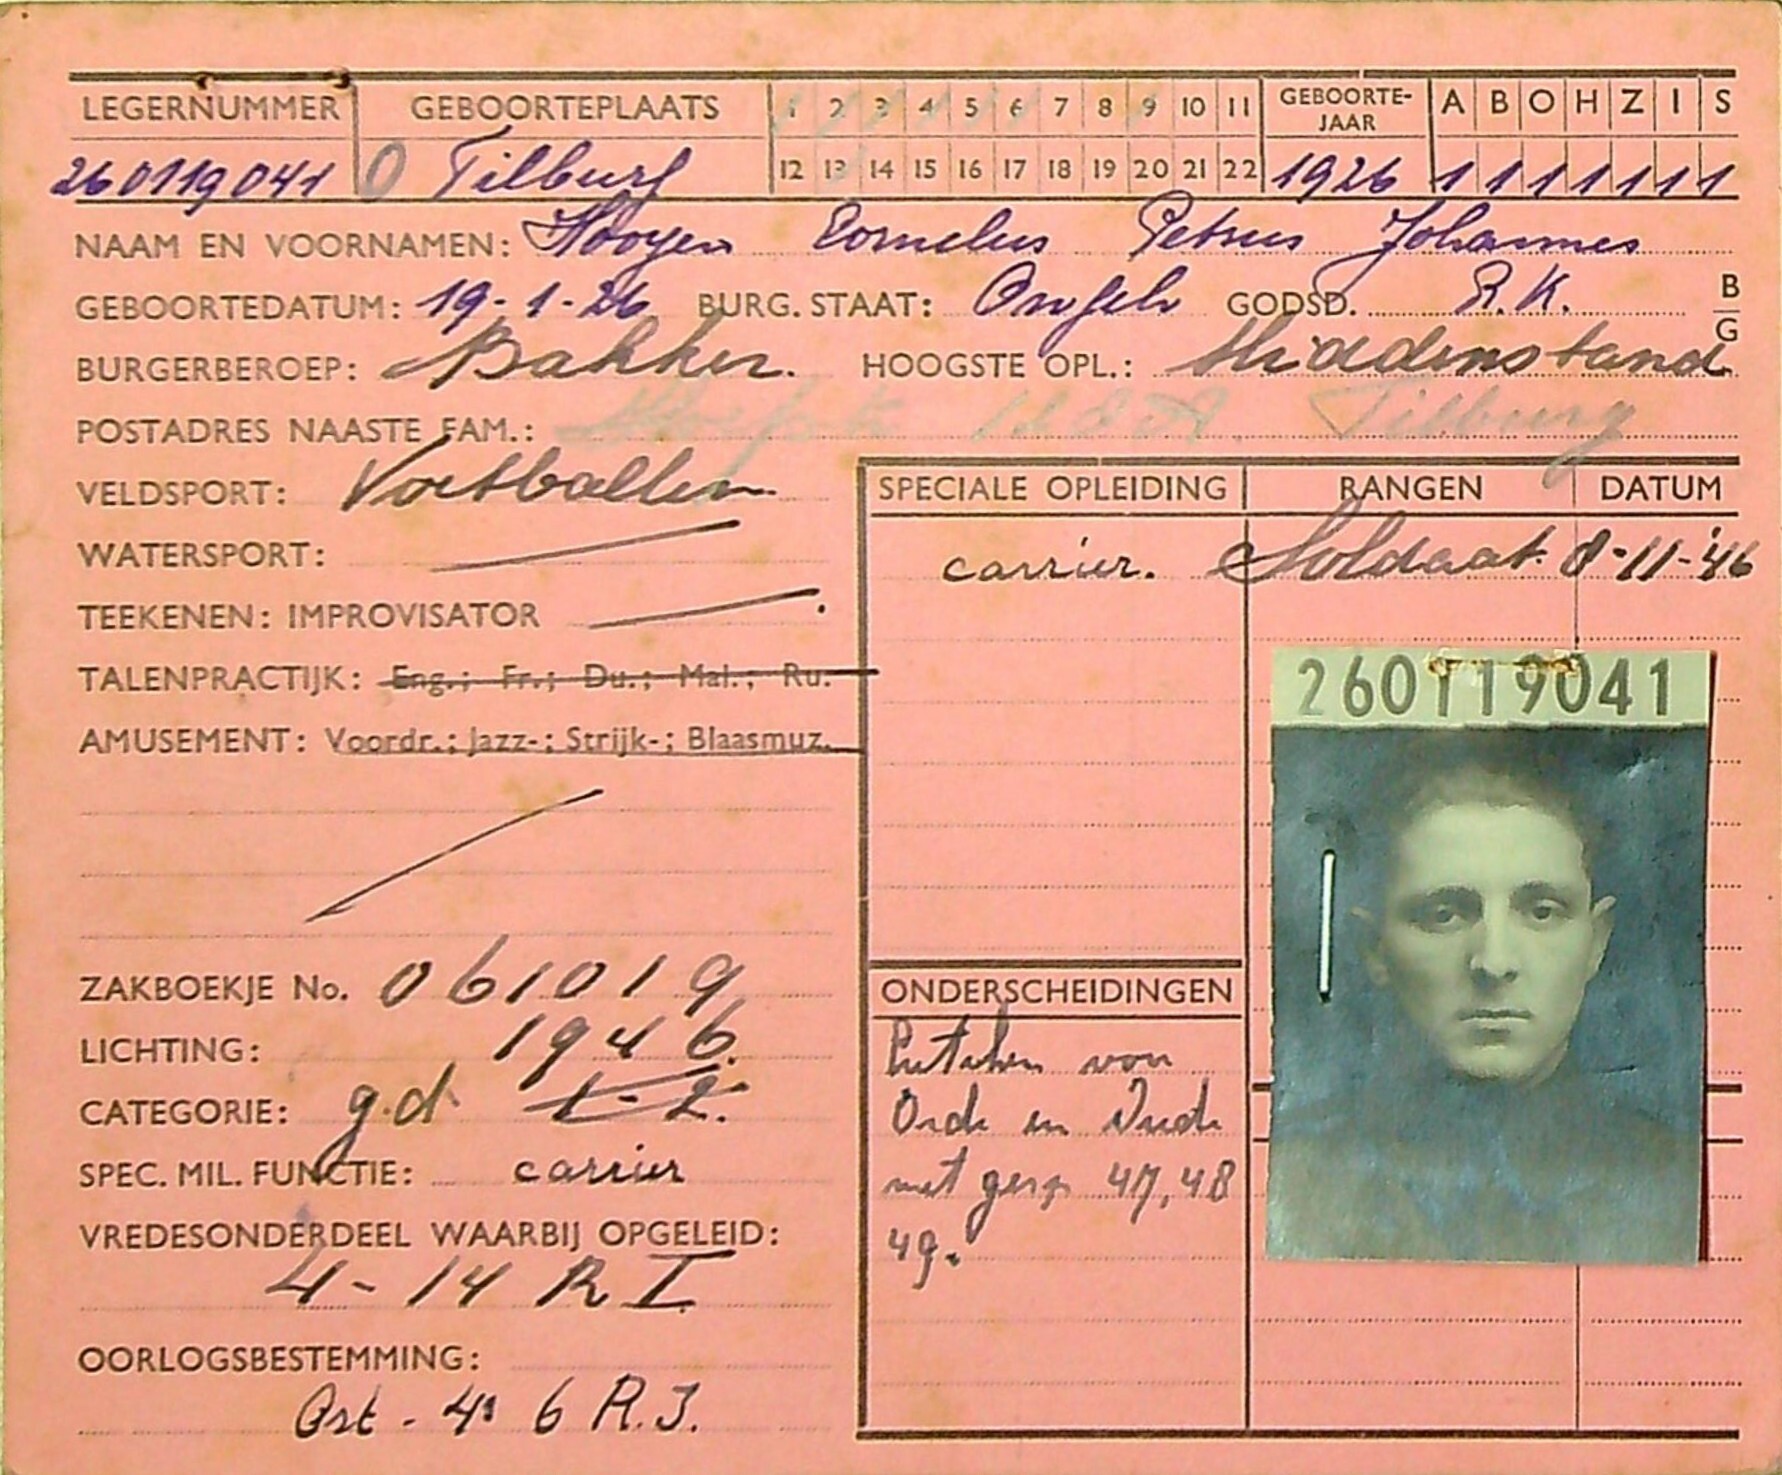 LEGERNUMMER GEBOORTEPLAATS 1 2 3 4 5 6 7 8 9 10 11 GEBOORTE-JAAR A B O H Z I S
260119041 O Tilburg 12 13 14 15 16 17 18 19 20 21 22 1926 1 1 1 1 1 1 1
NAAM EN VOORNAMEN: Hooyen Cornelus Petrus Johannes
GEBOORTEDATUM: 19-1-26 BURG. STAAT: Ongeh GODSD. R.K. B/G
BURGERBEROEP: Bakker. HOOGSTE OPL.: Middenstand
POSTADRES NAASTE FAM.: Tilburg
VELDSPORT: Voetballen
WATERSPORT:
TEEKENEN: IMPROVISATOR
TALENPRACTIJK: Eng.; Fr.; Du.; Mal.; Ru.
AMUSEMENT: Voordr.; Jazz-; Strijk-; Blaasmuz.
ZAKBOEKJE No. 061019
LICHTING: 1946.
CATEGORIE: g.d. 1-2.
SPEC. MIL. FUNCTIE: carrier
VREDESONDERDEEL WAARBIJ OPGELEID:
4-14 R I
OORLOGSBESTEMMING:
Ost - 4 6 R.I.
SPECIALE OPLEIDING RANGEN DATUM
carrier. Soldaat. 8-11-'46
260119041
ONDERSCHEIDINGEN
van
Orde en Vrede
met gesp 47, 48
49.